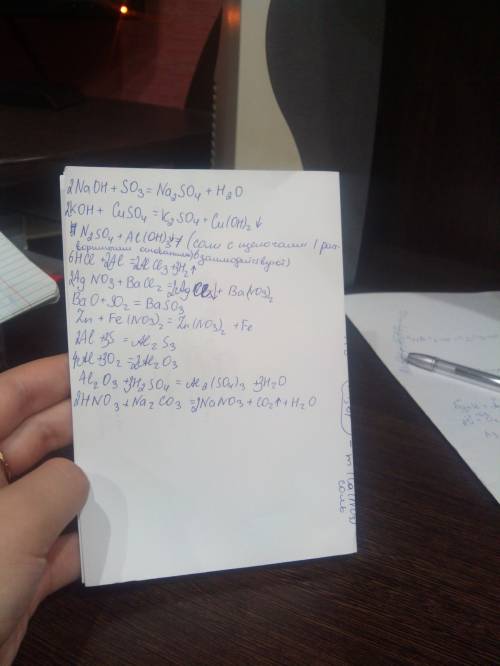 2NaOH + SO3 = Na2SO4 + H2O
2KOH + CuSO4 = K2SO4 + Cu(OH)2↓
N2SO4 + Al(OH)3 ≠ (соли с щелочами (рас
творимыми основаниями) взаимодействуют)
6HCl + 2Al = 2AlCl3 + 3H2↑
2AgNO3 + BaCl2 = 2AgCl↓ + Ba(NO3)2
BaO + SO2 = BaSO3
Zn + Fe(NO3)2 = Zn(NO3)2 + Fe
2Al + 3S = Al2S3
4Al + 3O2 = 2Al2O3
Al2O3 + 3H2SO4 = Al2(SO4)3 + 3H2O
2HNO3 + Na2CO3 = 2NaNO3 + CO2↑ + H2O
соль